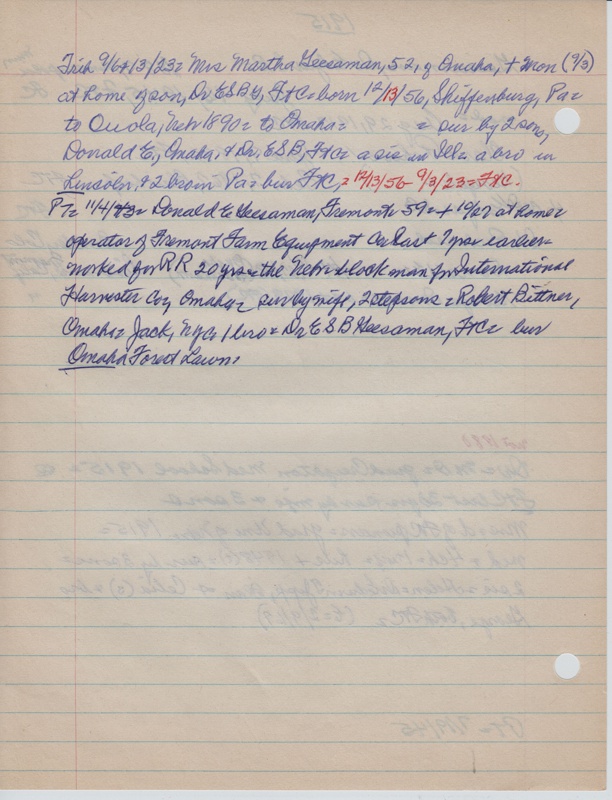 Trib 9/6+13/23= Mrs Martha Geesaman, 52, of Omaha, + Mon (9/3)
at home of son, Dr ESBG, FtC= born 12/13/56, Shiffenburg, Pa=
to Ouola, Nebr 1890= to Omaha= = sur by 2 sons,
Donald E., Omaha, & Dr. ESB, FtC= a sis in Ill= a bro in
Lincoln, + 2 bro in Pa= bur FtC, = 12/13/56 - 9/3/23= FtC.
PT= 11/4/ = Donald E Geesaman, Fremont= 59= + 10/27 at home=
operator of Fremont Farm Equipment Co last 7 yrs= earlier
worked for RR 20 yrs= the Nebr block man for International
Harvester Co, Omaha= sur by wife, 2 stepsons= Robert Bittner,
Omaha= Jack, NYC= 1 bro= Dr E S B Geesaman, FtC= bur
Omaha Forest Lawn=